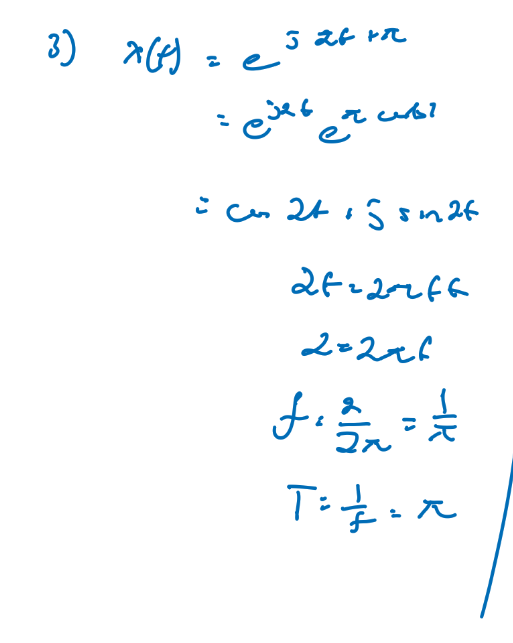 3) x(t) = e^{j2t+π}
= e^{j2t} e^{π const}
= cos 2t + j sin 2t
2t = 2πft
2 = 2πf
f = 2/2π = 1/π
T = 1/f = π